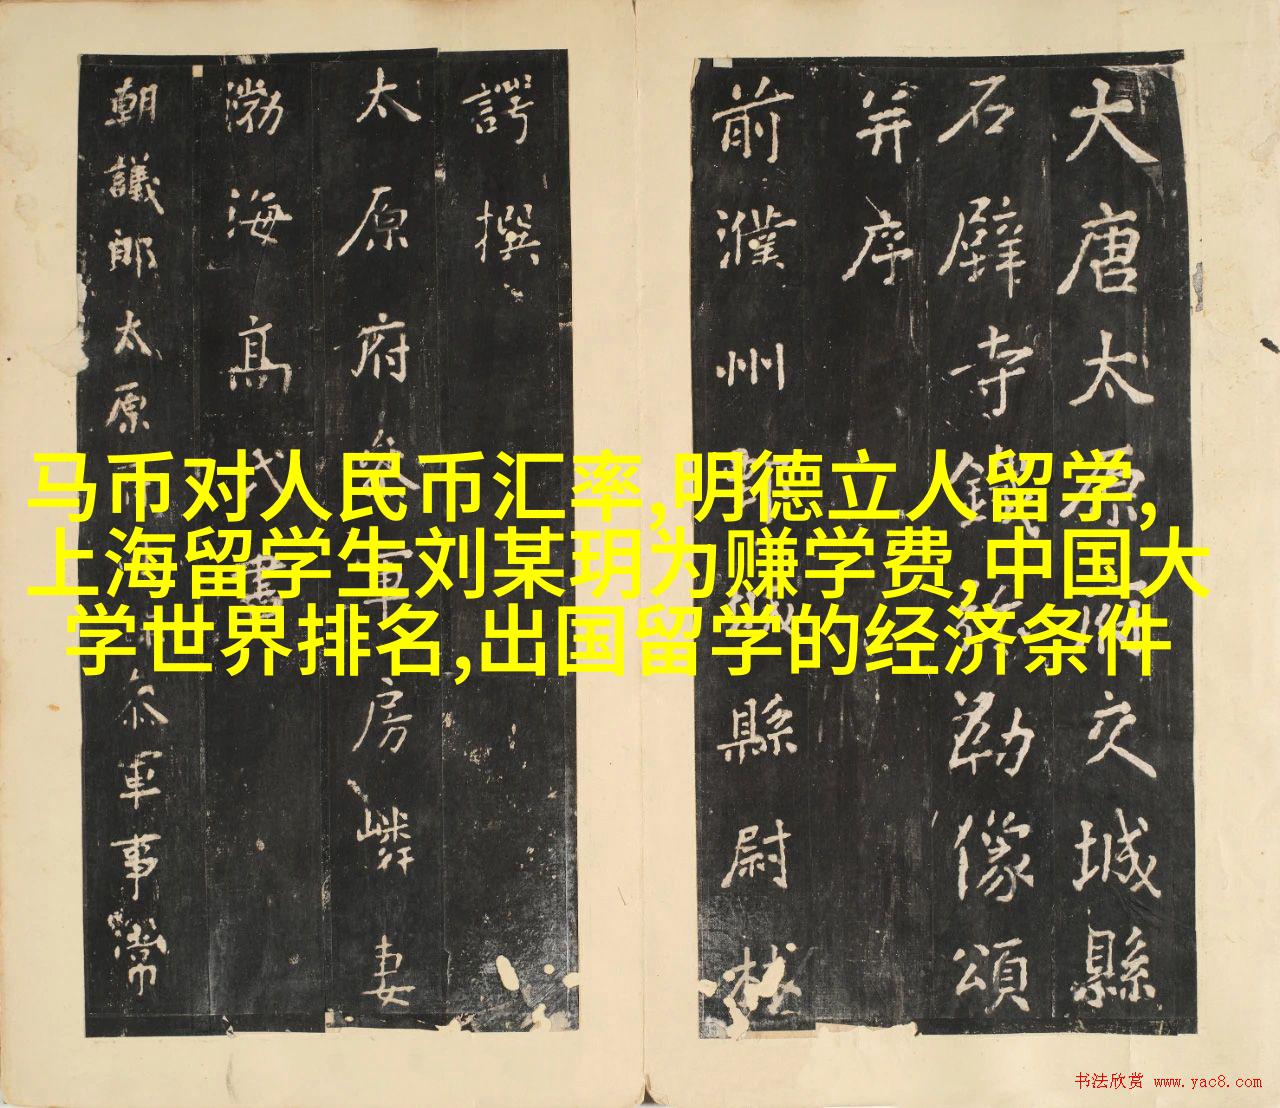 马币对人民币汇率,明德立人留学,
上海留学生刘某玥为赚学费,中国大
学世界排名,出国留学的经济条件
大唐太原府交城縣
石壁寺鐵弥勒像頌
并序
前濮州縣尉林
諤撰
太原府參軍房嶙妻
渤海高氏書
朝議郎太原參軍事常
书法欣赏 www.yac8.com